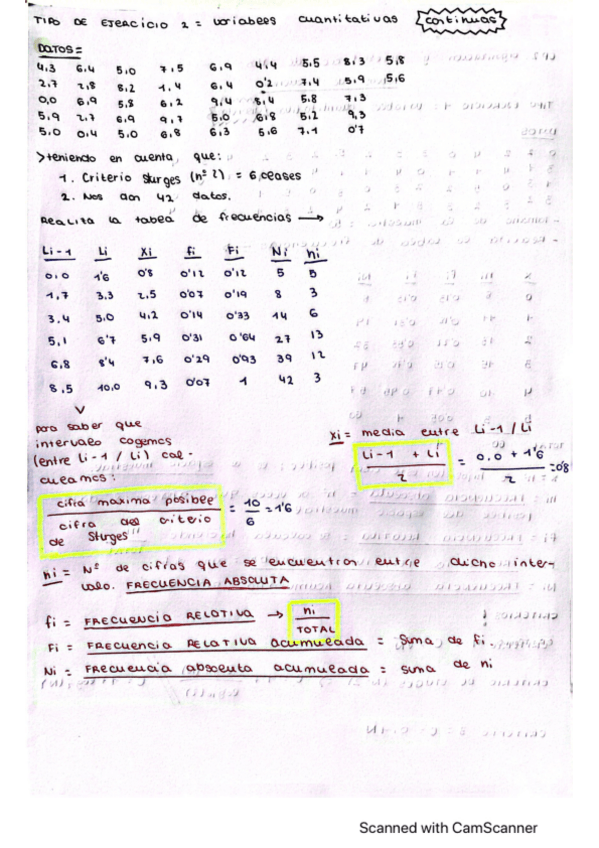 TIPO DE EJERCICIO 2 = variables cuantitativas continuas
DATOS =
4,3 6,4 5,0 7,5 6,9 4,4 5,5 8,3 5,8
2,7 2,8 8,2 1,4 6,4 0'2 7,4 5,9 5,6
0,0 6,9 5,8 6,2 9,4 8,4 5,8 7,3
5,9 2,7 6,9 9,7 5,0 6,8 5,2 9,3
5,0 0,4 5,0 6,8 6,3 5,6 7,1 0'7
>teniendo en cuenta que:
1. Criterio Sturges (nº 2) = 6 clases
2. Nos dan 42 datos.
Realiza la tabla de frecuencias →
Li-1 Li Xi fi Fi Ni ni
0,0 1'6 0'8 0'12 0'12 5 5
1,7 3,3 2,5 0'07 0'19 8 3
3,4 5,0 4,2 0'14 0'33 14 6
5,1 6'7 5,9 0'31 0'64 27 13
6,8 8'4 7,6 0'29 0'93 39 12
8,5 10,0 9,3 0'07 1 42 3
para saber que
intervalo cogemos
(entre Li-1 / Li) cal-
culamos:
cifra maxima posible
cifra del criterio
de Sturges
= 10/6 = 1'6
xi = media entre Li-1 / Li
Li-1 + Li / 2 = 0,0 + 1'6 / 2 = 0'8
ni = Nº de cifras que se encuentran entre dicho inter-
valo. FRECUENCIA ABSOLUTA
fi = FRECUENCIA RELATIVA → ni / TOTAL
Fi = FRECUENCIA RELATIVA acumulada = suma de fi
Ni = FRECUENCIA absoluta acumulada = suma de ni
Scanned with CamScanner